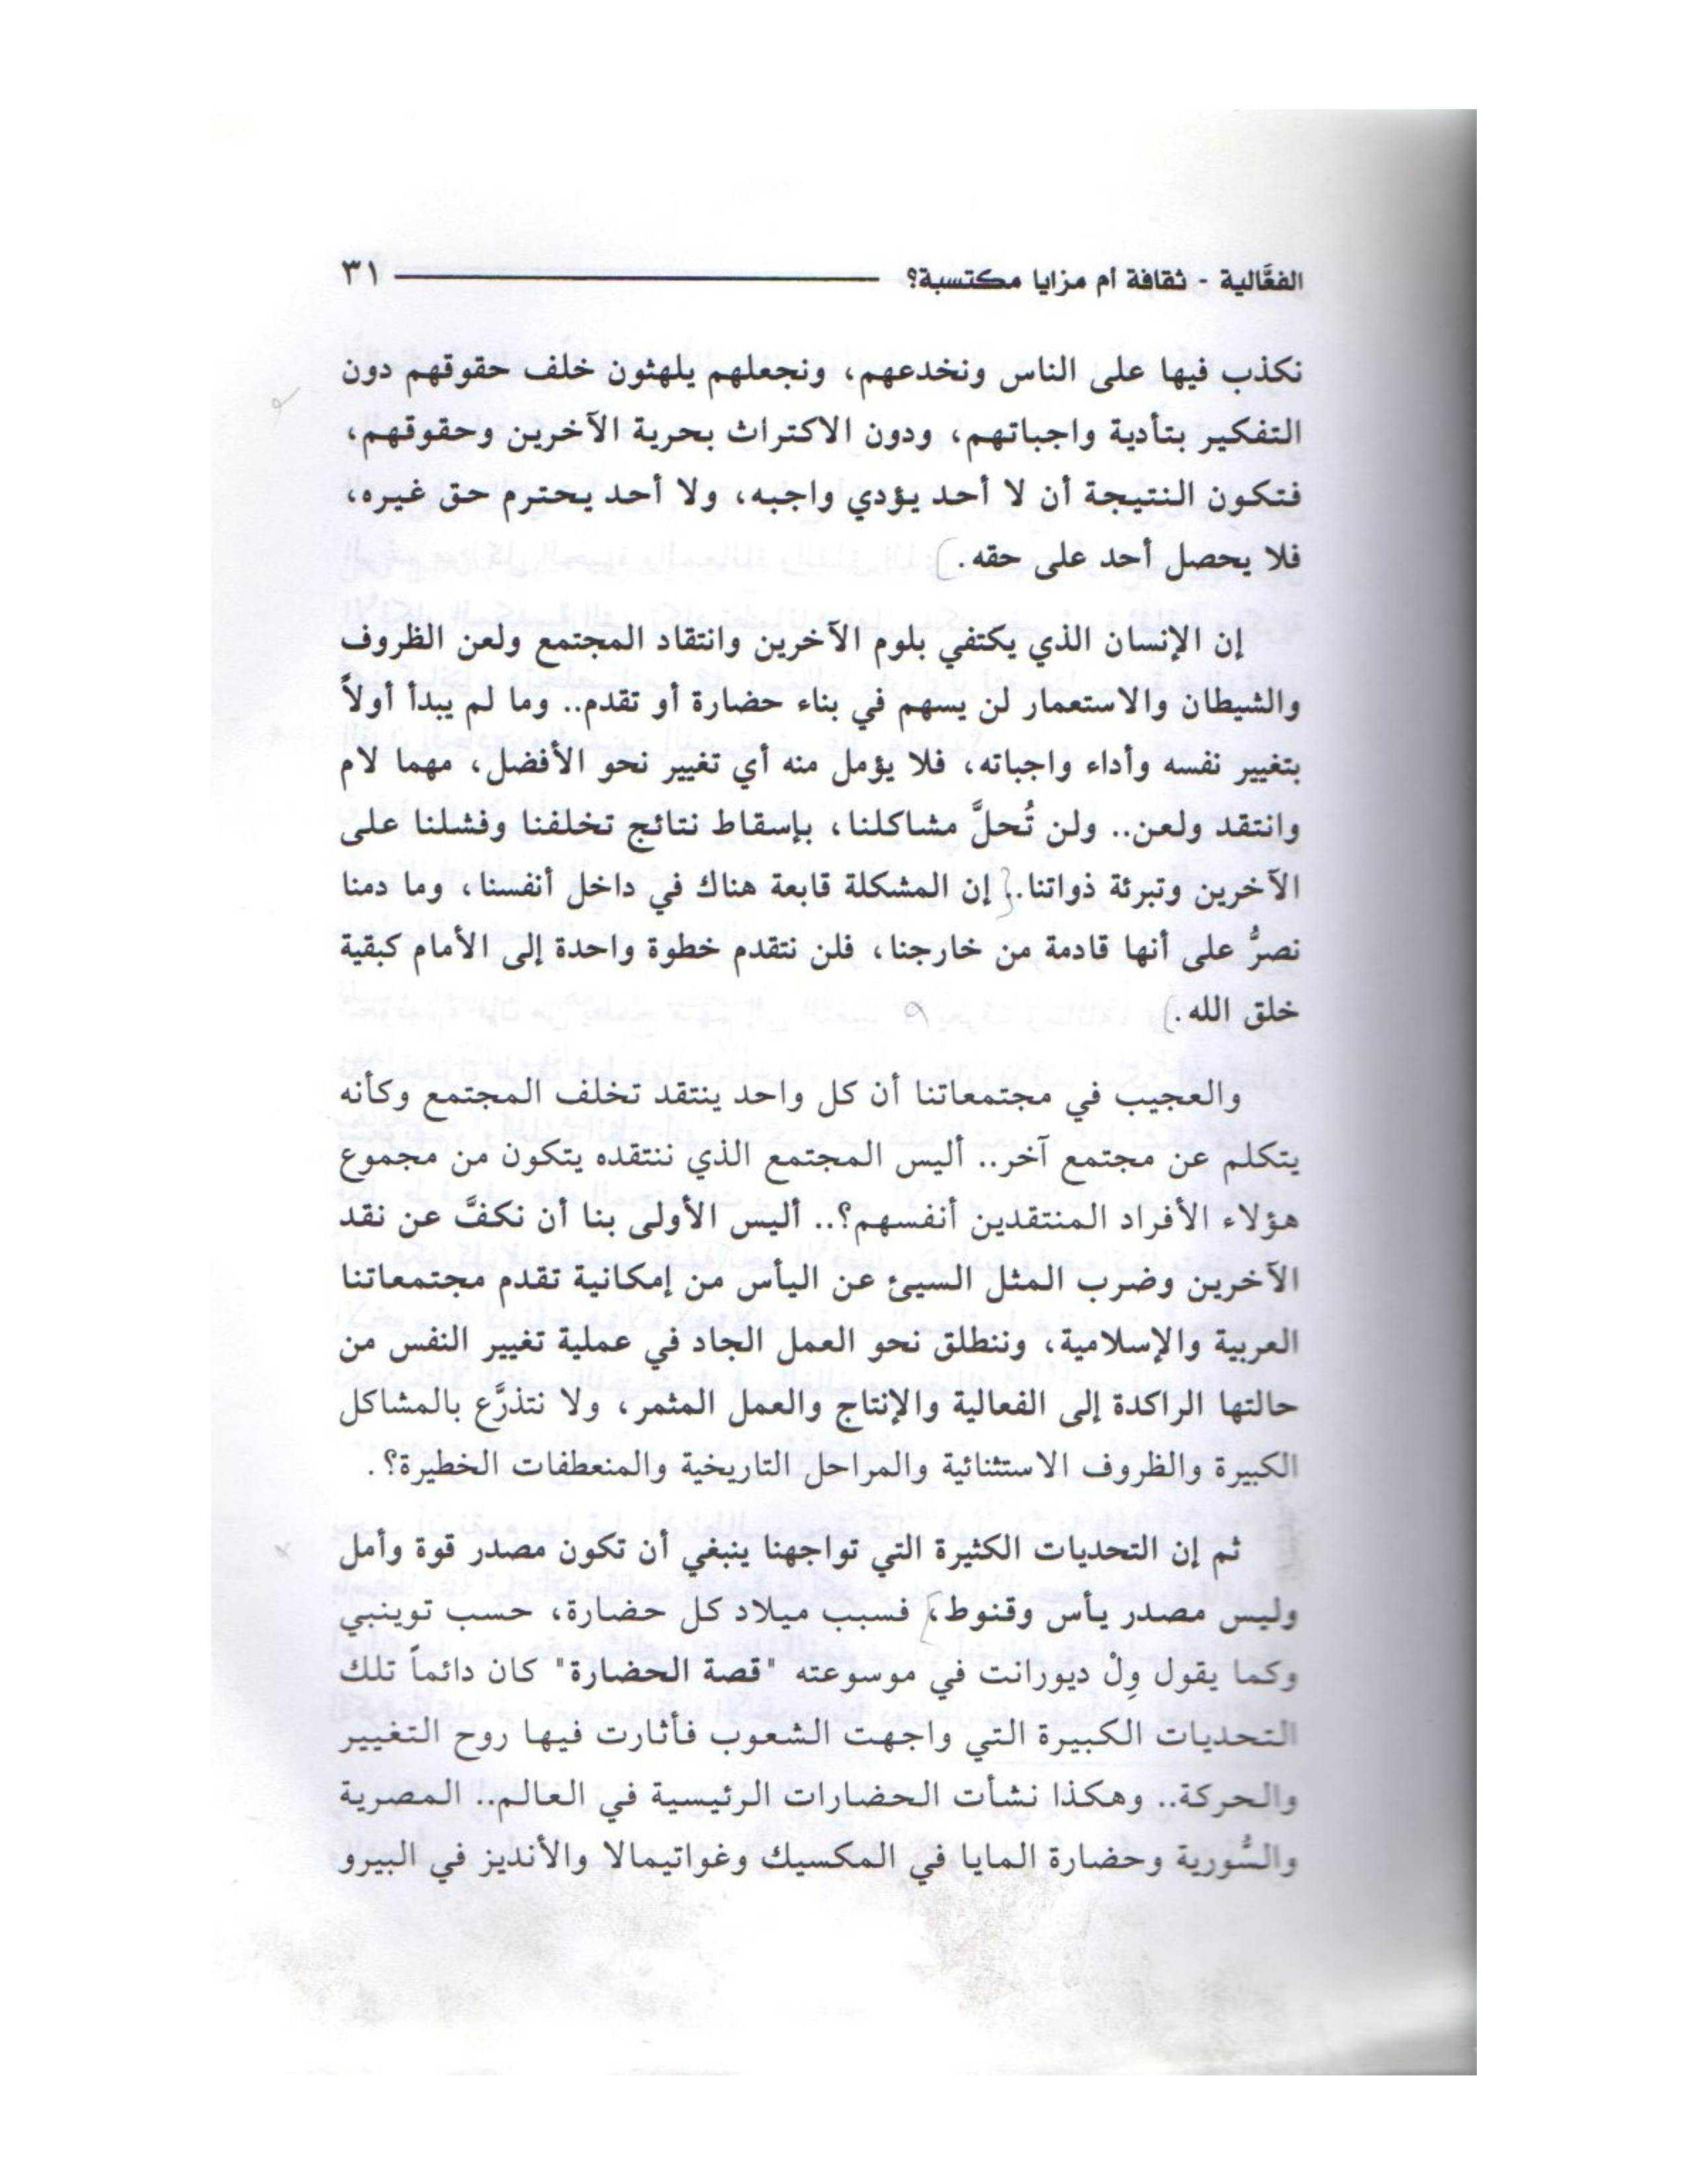 الفعَّالية - ثقافة أم مزايا مكتسبة؟ ٣١
نكذب فيها على الناس ونخدعهم، ونجعلهم يلهثون خلف حقوقهم دون
التفكير بتأدية واجباتهم، ودون الاكتراث بحرية الآخرين وحقوقهم،
فتكون النتيجة أن لا أحد يؤدي واجبه، ولا أحد يحترم حق غيره،
فلا يحصل أحد على حقه.
إن الإنسان الذي يكتفي بلوم الآخرين وانتقاد المجتمع ولعن الظروف
والشيطان والاستعمار لن يسهم في بناء حضارة أو تقدم.. وما لم يبدأ أولاً
بتغيير نفسه وأداء واجباته، فلا يؤمل منه أي تغيير نحو الأفضل، مهما لام
وانتقد ولعن.. ولن تُحلَّ مشاكلنا، بإسقاط نتائج تخلفنا وفشلنا على
الآخرين وتبرئة ذواتنا.. إن المشكلة قابعة هناك في داخل أنفسنا، وما دمنا
نصرُّ على أنها قادمة من خارجنا، فلن نتقدم خطوة واحدة إلى الأمام كبقية
خلق الله.
والعجيب في مجتمعاتنا أن كل واحد ينتقد تخلف المجتمع وكأنه
يتكلم عن مجتمع آخر.. أليس المجتمع الذي ننتقده يتكون من مجموع
هؤلاء الأفراد المنتقدين أنفسهم؟.. أليس الأولى بنا أن نكفَّ عن نقد
الآخرين وضرب المثل السيئ عن اليأس من إمكانية تقدم مجتمعاتنا
العربية والإسلامية، وننطلق نحو العمل الجاد في عملية تغيير النفس من
حالتها الراكدة إلى الفعالية والإنتاج والعمل المثمر، ولا نتذرَّع بالمشاكل
الكبيرة والظروف الاستثنائية والمراحل التاريخية والمنعطفات الخطيرة؟.
ثم إن التحديات الكثيرة التي تواجهنا ينبغي أن تكون مصدر قوة وأمل
وليس مصدر يأس وقنوط، فسبب ميلاد كل حضارة، حسب توينبي
وكما يقول وِلْ ديورانت في موسوعته "قصة الحضارة" كان دائماً تلك
التحديات الكبيرة التي واجهت الشعوب فأثارت فيها روح التغيير
والحركة.. وهكذا نشأت الحضارات الرئيسية في العالم.. المصرية
والسُّورية وحضارة المايا في المكسيك وغواتيمالا والأنديز في البيرو